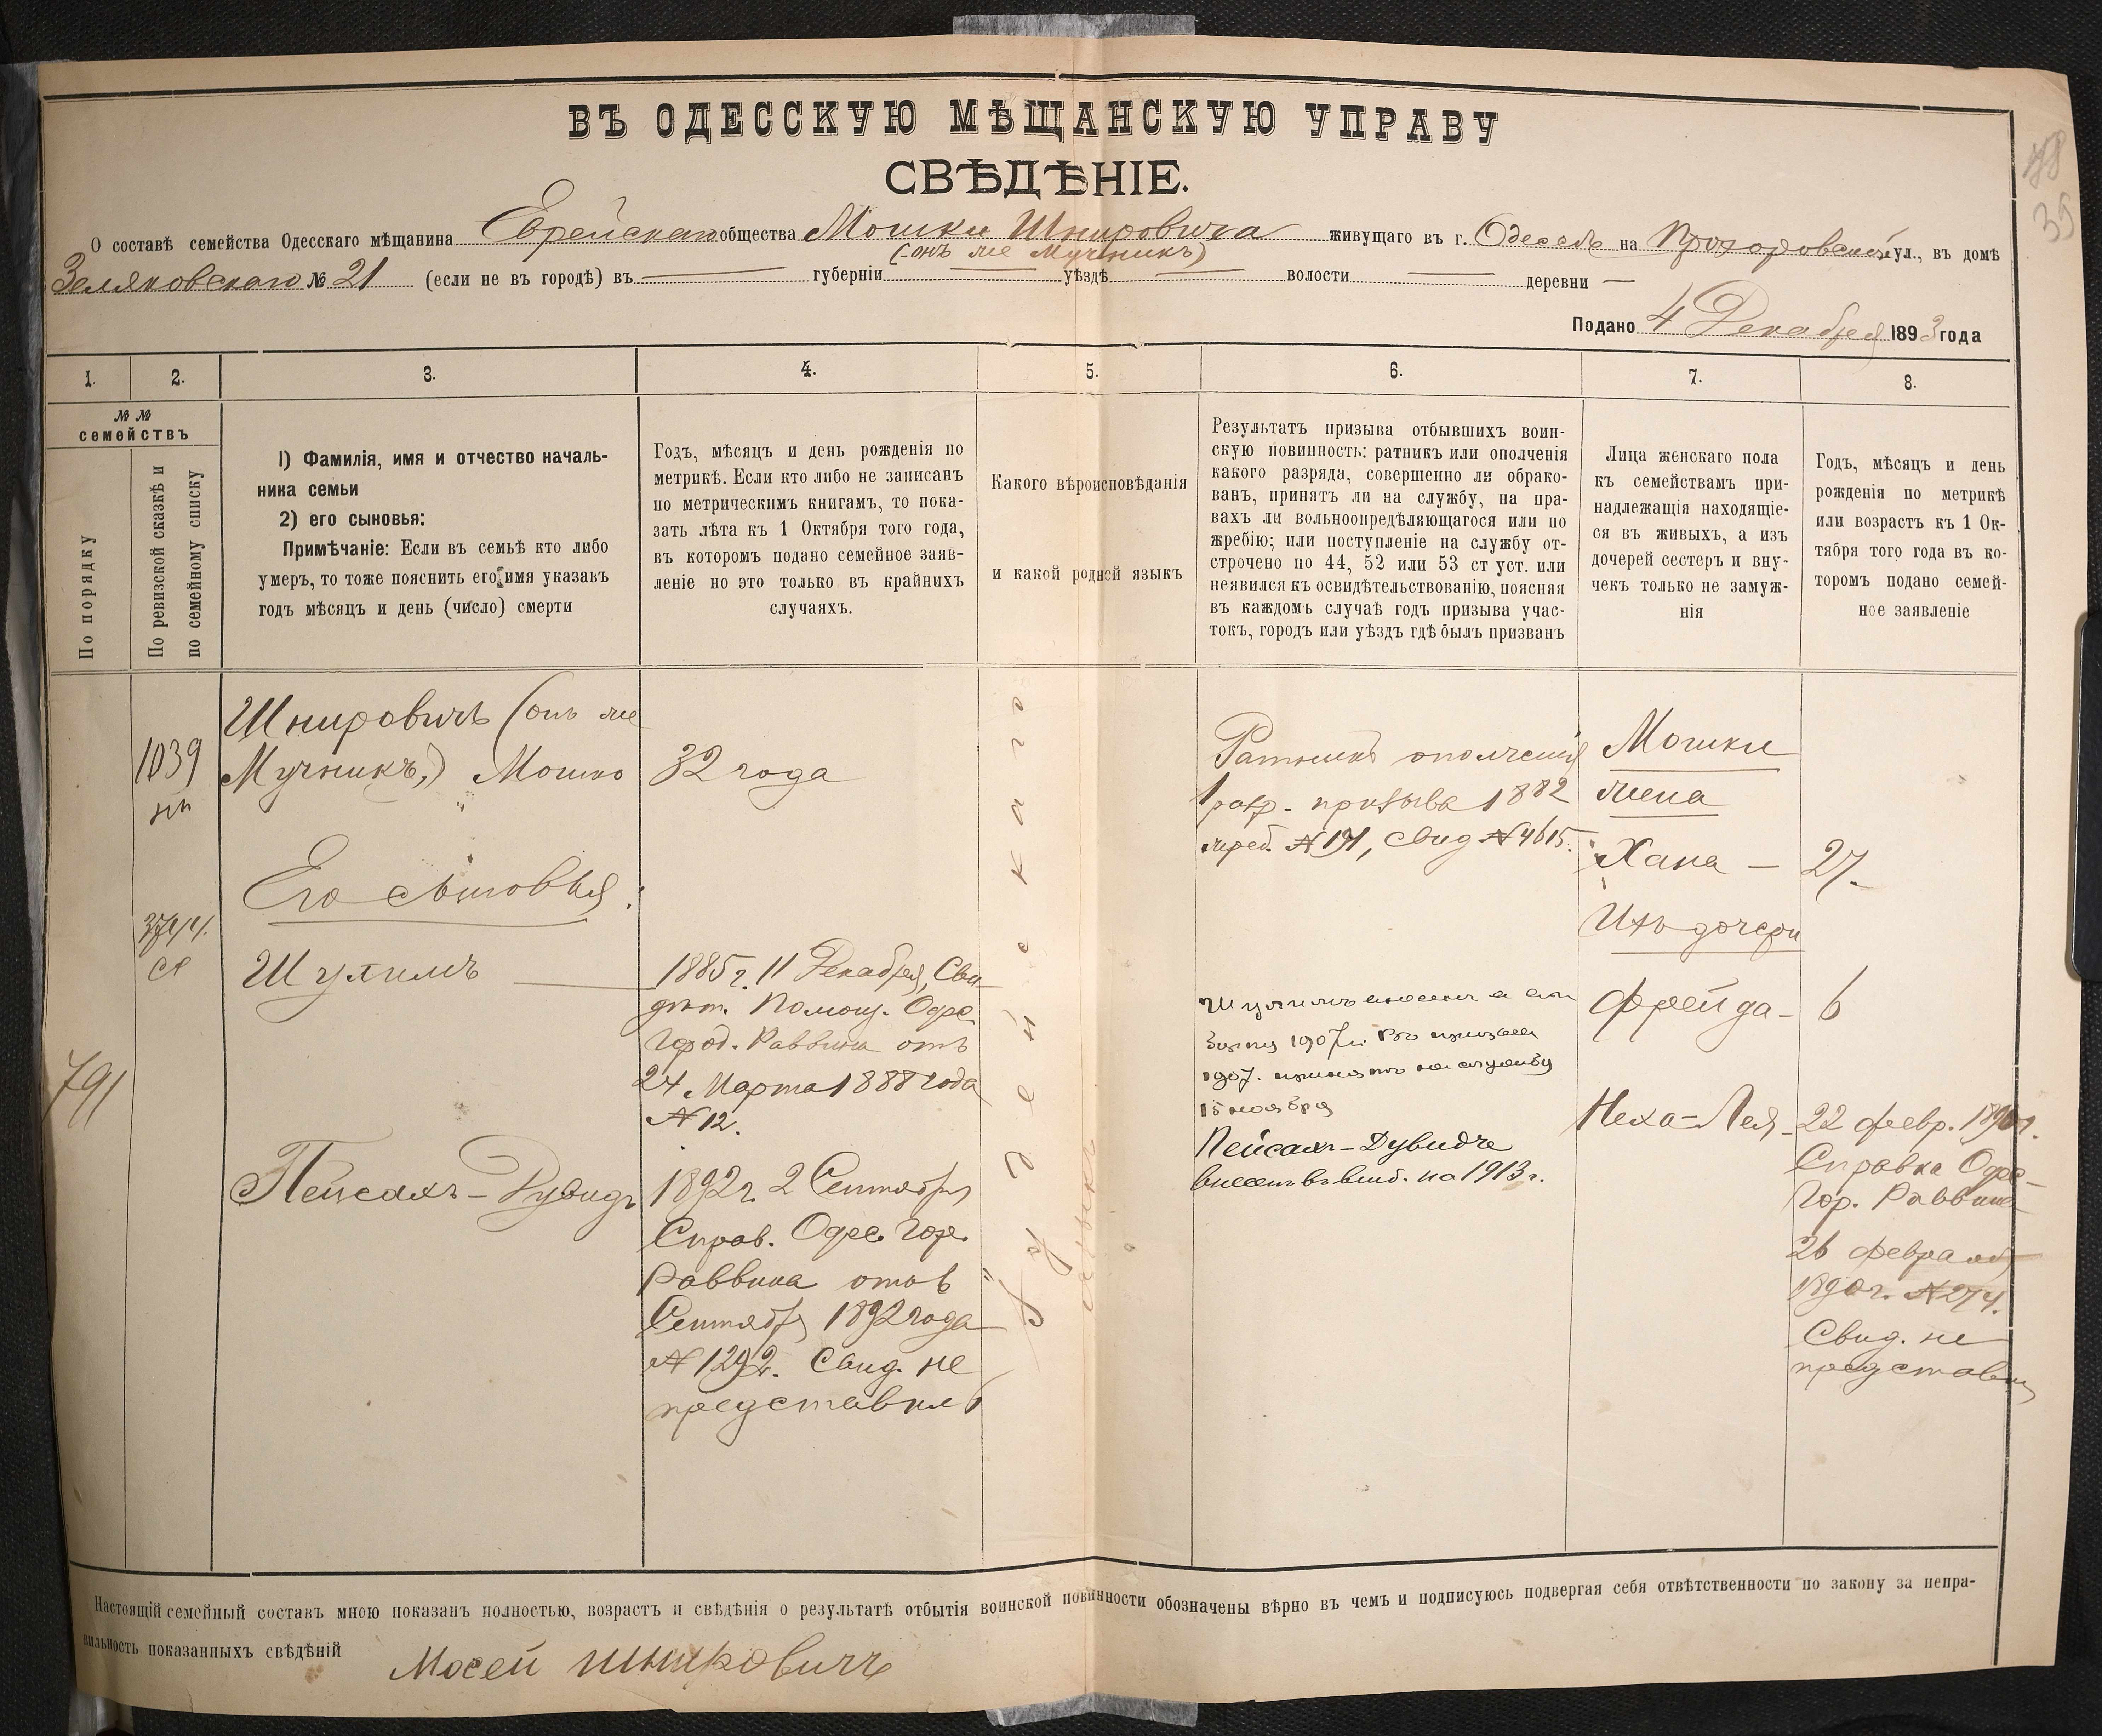 ВЪ ОДЕССКУЮ МѢЩАНСКУЮ УПРАВУ
СВѢДѢНІЕ.
О составѣ семейства Одесскаго мѣщанина Еврейскаго общества Мошки Шнировича живущаго въ г. Одессѣ на Прохоровской ул., въ домѣ
(онъ же Мучникъ)
Зеляковскаго № 21 (если не въ городѣ) въ — губерніи — уѣздѣ — волости — деревни —
Подано 4 Декабря 1893 года
1.
2.
3.
4.
5.
6.
7.
8.
№ №
семействъ
По порядку
По ревизской сказкѣ и
по семейному списку
1) Фамилія, имя и отчество началь-
ника семьи
2) его сыновья:
Примѣчаніе: Если въ семьѣ кто либо
умеръ, то тоже пояснить его имя указавъ
годъ мѣсяцъ и день (число) смерти
Годъ, мѣсяцъ и день рожденія по
метрикѣ. Если кто либо не записанъ
по метрическимъ книгамъ, то пока-
зать лѣта къ 1 Октября того года,
въ которомъ подано семейное заяв-
леніе но это только въ крайнихъ
случаяхъ.
Какого вѣроисповѣданія
и какой родной языкъ
Результатъ призыва отбывшихъ воин-
скую повинность: ратникъ или ополченія
какого разряда, совершенно ли обрако-
ванъ, принятъ ли на службу, на пра-
вахъ ли вольноопредѣляющагося или по
жребію; или поступленіе на службу от-
строчено по 44, 52 или 53 ст уст. или
неявился къ освидѣтельствованію, поясняя
въ каждомъ случаѣ годъ призыва учас-
токъ, городъ или уѣздъ гдѣ былъ призванъ
Лица женскаго пола
къ семействамъ при-
надлежащія находящіе-
ся въ живыхъ, а изъ
дочерей сестеръ и вну-
чекъ только не замуж-
нія
Годъ, мѣсяцъ и день
рожденія по метрикѣ
или возрастъ къ 1 Ок-
тября того года въ ко-
торомъ подано семей-
ное заявленіе
791
1039
Шнировичъ (онъ же
Мучникъ,) Мошко
32 года
Его сыновья:
Шулимъ
1885 г. 11 Декабря, Сви-
дѣт. Помощ. Одес.
Город. Раввина отъ
24 Марта 1888 года
№ 12.
Пейсахъ-Дувидъ
1892 г. 2 Сентября
Справ. Одес. Гор.
Раввина отъ 6
Сентября 1892 года
№ 1292. Свид. не
представилъ
Іудейскаго
Ратникъ ополченія
1 разр. призыва 1882
жреб. № 191, свид № 4615.
Шулимъ
1907 г. Въ призывъ
1907. принятъ на службу
15 ноября
Пейсахъ-Дувидъ
внесенъ въ 1913 г.
Мошки
жена
Хана — 27
Ихъ дочери
Фрейда - 6
Неха-Лея - 22 февр. 1890 г.
Справка Одес-
Гор. Раввина
26 февраля
1890 г. № 274.
Свид. не
представилъ
Настоящій семейный составъ мною показанъ полностью, возрастъ и свѣдѣнія о результатѣ отбытія воинской повинности обозначены вѣрно въ чемъ и подписуюсь подвергая себя отвѣтственности по закону за непра-
вильность показанныхъ свѣдѣній
Мосей Шнировичъ